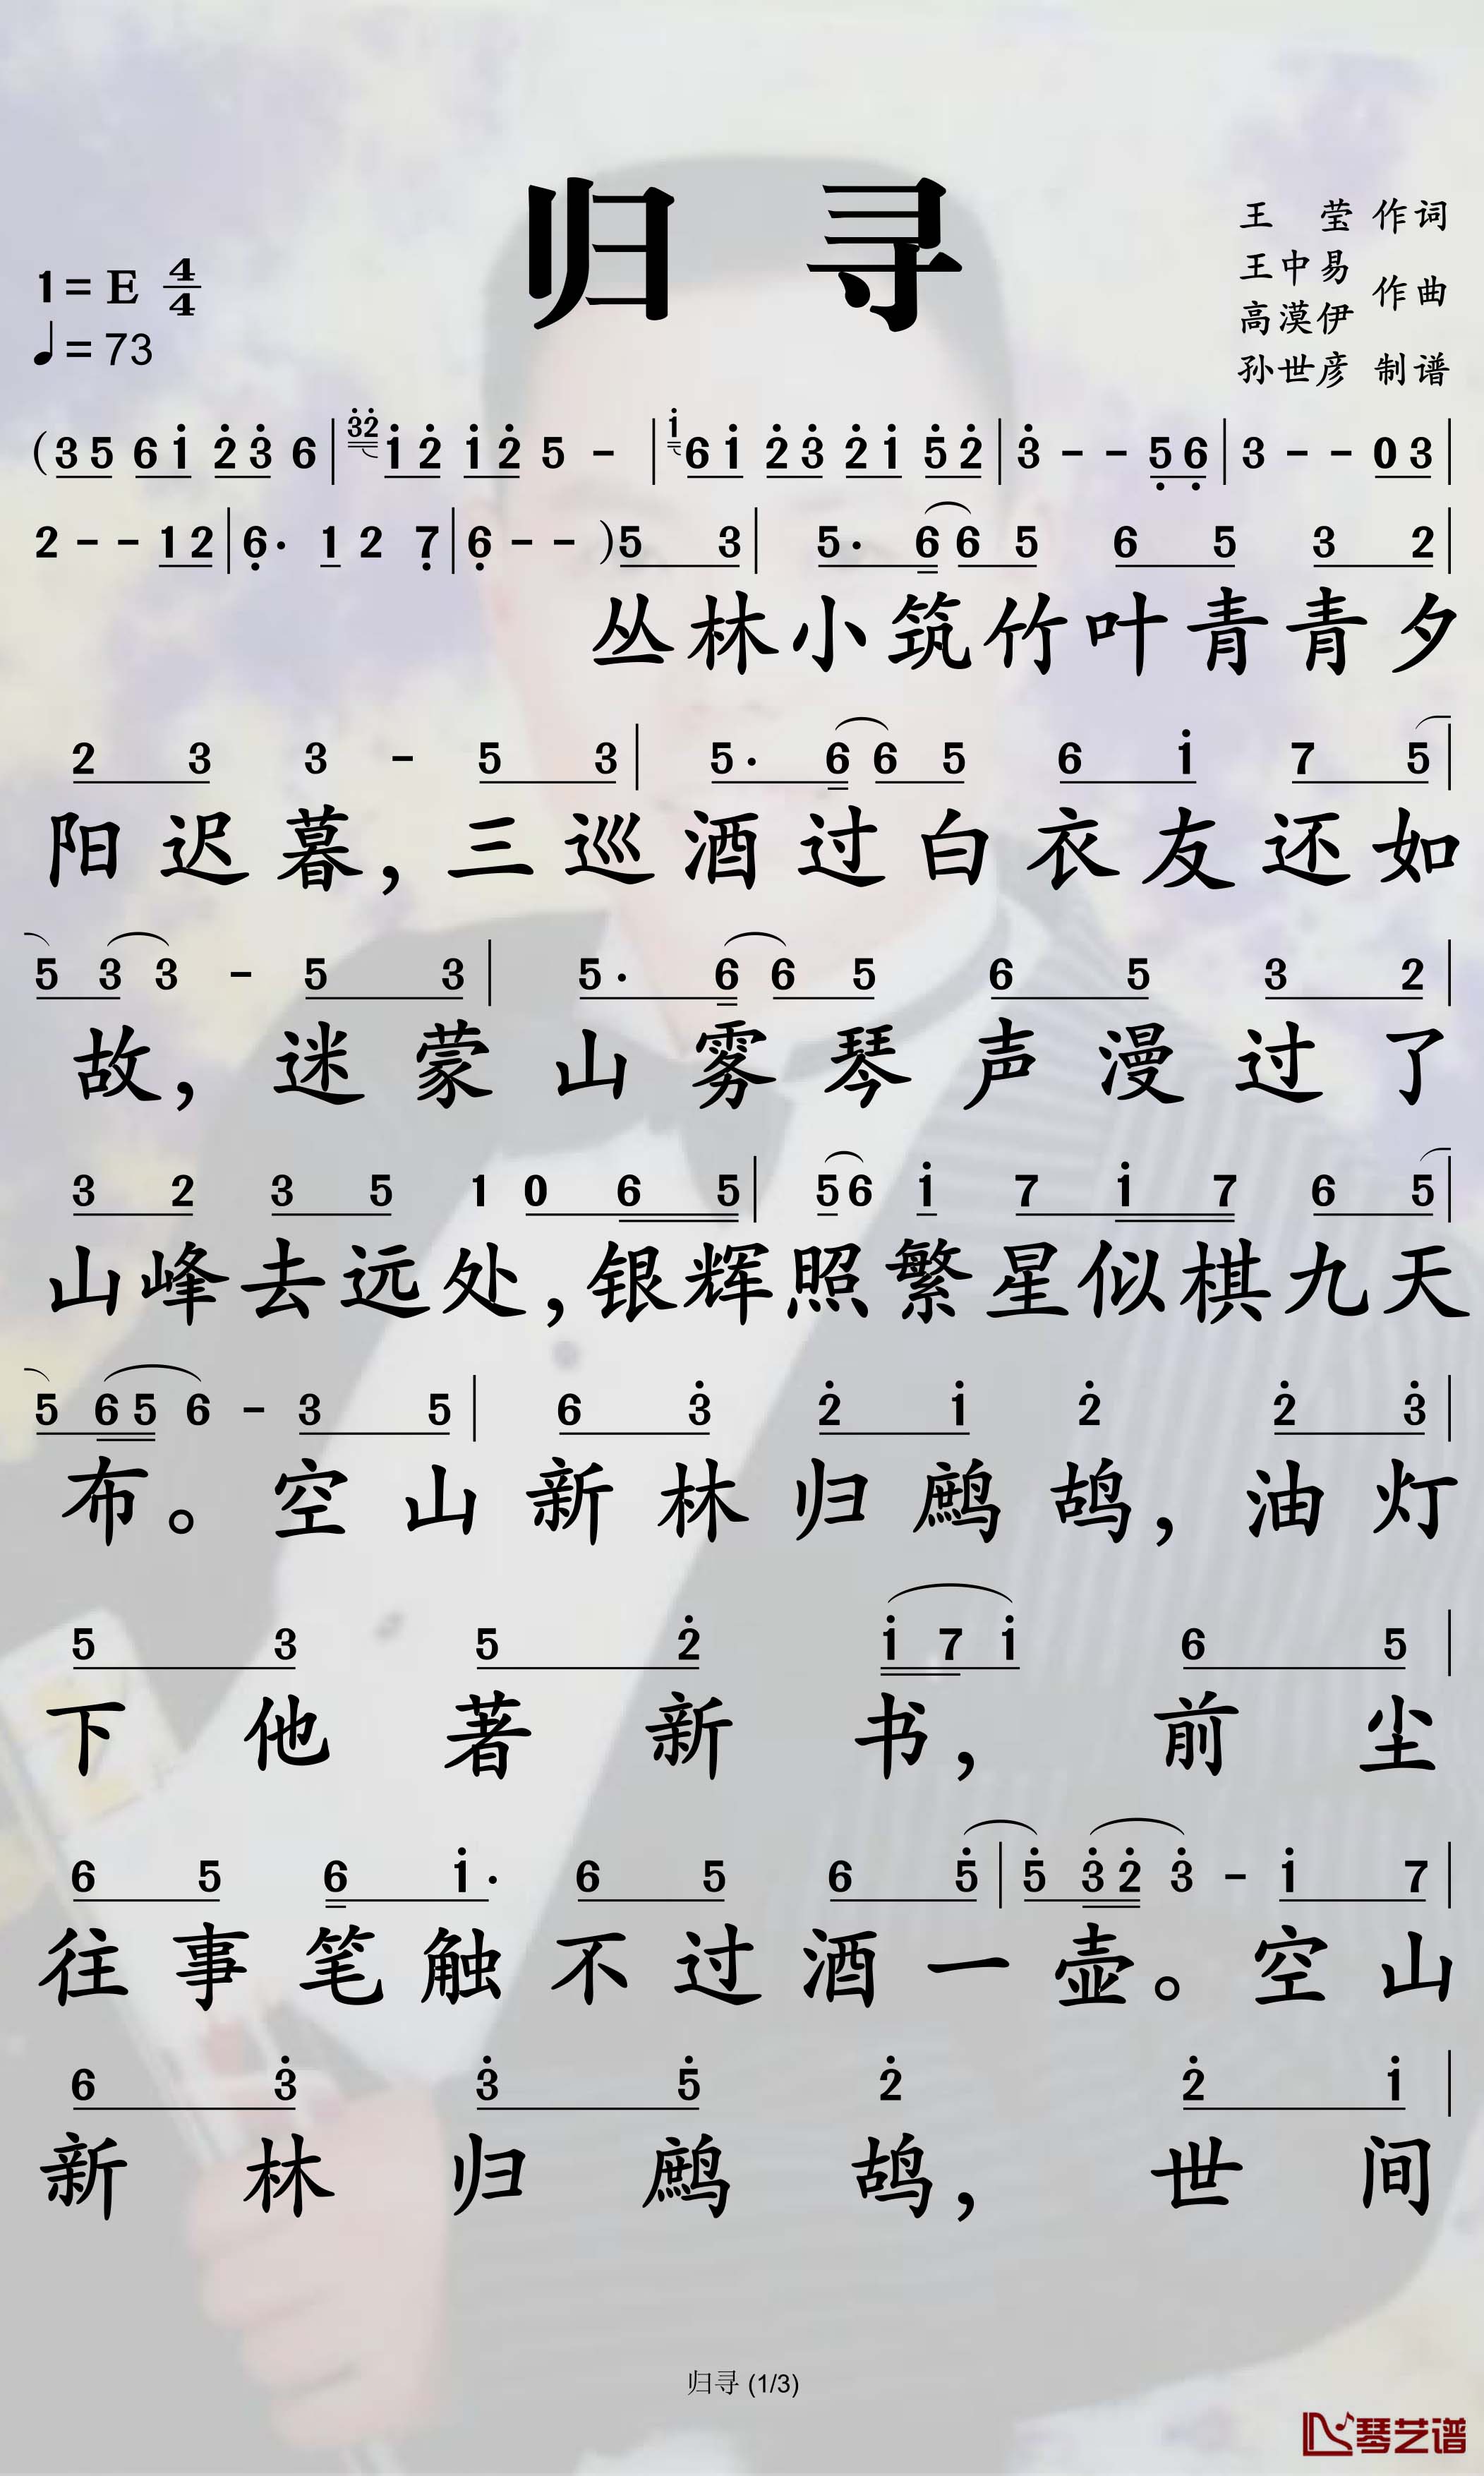 归 寻
1=E 4/4
♩=73
王 莹 作词
王中易
高漠伊 作曲
孙世彦 制谱
(3 5 6 i̇ 2̇ 3̇ 6 | 3̇2̇ i̇ 2̇ i̇ 2̇ 5 - | i̇ 6 i̇ 2̇ 3̇ 2̇ i̇ 5̇ 2̇ | 3̇ - - 5̣ 6̣ | 3 - - 0 3 |
2 - - 1 2 | 6̣· 1 2 7̣ | 6̣ - - ) 5 3 | 5· 6 6 5 6 5 3 2 |
丛林小筑竹叶青青夕
2 3 3 - 5 3 | 5· 6 6 5 6 i̇ 7 5 |
阳迟暮，三巡酒过白衣友还如
5 3 3 - 5 3 | 5· 6 6 5 6 5 3 2 |
故，迷蒙山雾琴声漫过了
3 2 3 5 1 0 6 5 | 5 6 i̇ 7 i̇ 7 6 5 |
山峰去远处，银辉照繁星似棋九天
5 6 5 6 - 3 5 | 6 3̇ 2̇ i̇ 2̇ 2̇ 3̇ |
布。空山新林归鹧鸪，油灯
5 3 5 2̇ i̇ 7 i̇ 6 5 |
下他著新书，前尘
6 5 6 i̇· 6 5 6 5̇ | 5̇ 3̇ 2̇ 3̇ - i̇ 7 |
往事笔触不过酒一壶。空山
6 3̇ 3̇ 5̇ 2̇ 2̇ i̇ |
新林归鹧鸪，世间
归寻 (1/3)
琴艺谱